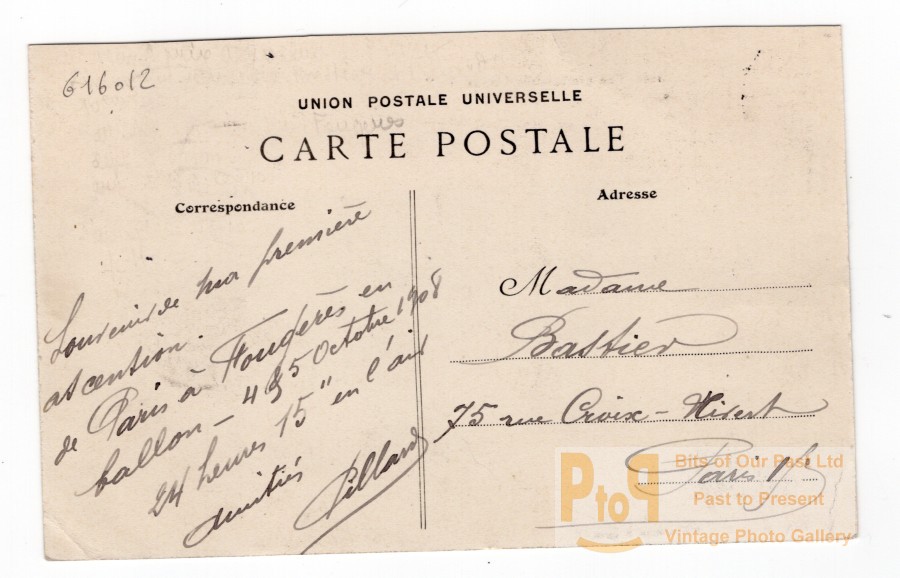 616012
UNION POSTALE UNIVERSELLE
CARTE POSTALE
Correspondance
Souvenir de ma première
ascention.
de Paris à Fougères en
ballon - 4 & 5 Octobre 1908
24 heures 15" en l'air
Amitiés
Adresse
Madame
Bastier
75 rue Croix-Nivert
Paris
PtoP
Bits of Our Past Ltd
Past to Present
Vintage Photo Gallery